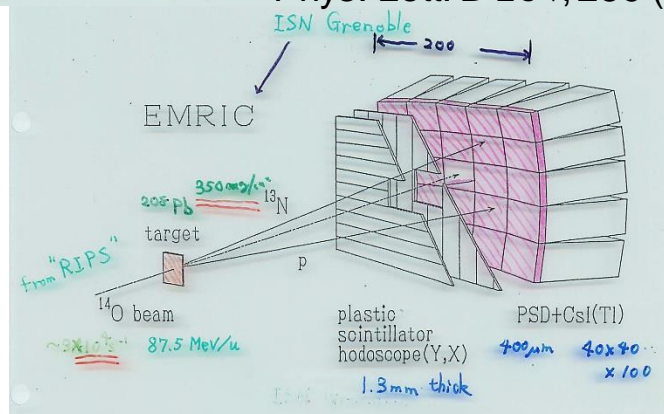 ISN Grenoble
200
EMRIC
350mg/cm²
¹³N
target
from "RIPS"
p
¹⁴O beam
87.5 MeV/u
plastic
scintillator
hodoscope(Y,X)
1.3mm thick
PSD+CsI(Tl)
400μm 40×40
×100